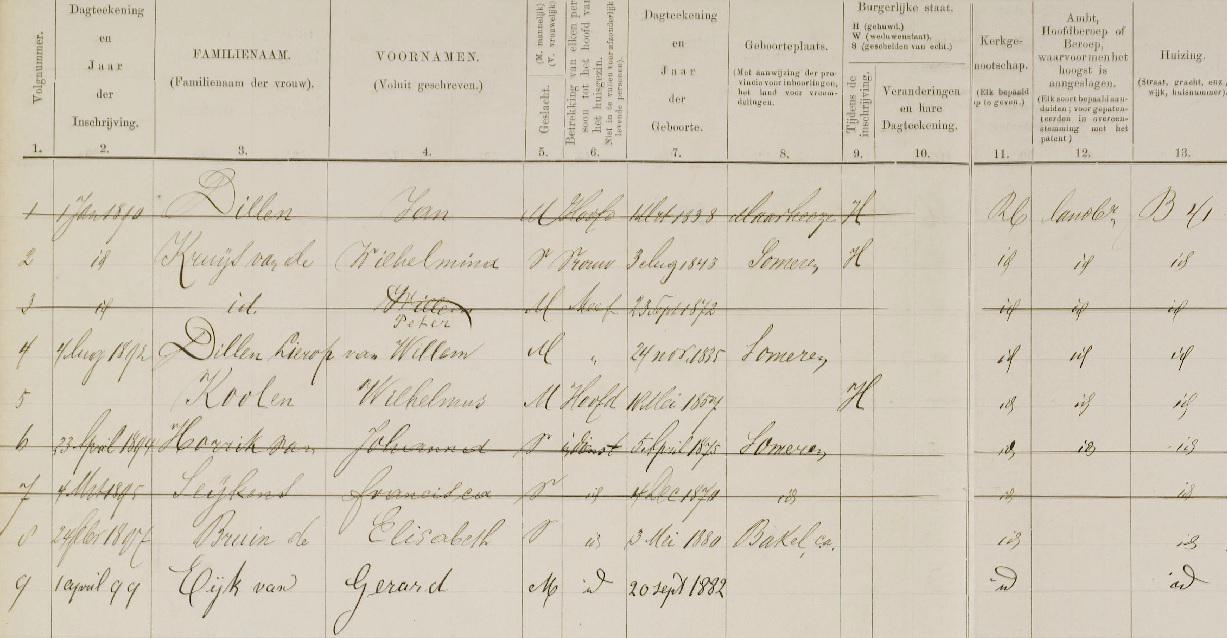 Volgnummer. Dagteekening en Jaar der Inschrijving. FAMILIENAAM. (Familienaam der vrouw). VOORNAMEN. (Voluit geschreven.) Geslacht. (M. mannelijk) (V. vrouwelijk) Betrekking van elken persoon tot het hoofd van het huisgezin. Dagteekening en Jaar der Geboorte. Geboorteplaats. (Met aanwijzing der provincie voor inboorlingen, het land voor vreemdelingen.) Burgerlijke staat. H (gehuwd.) W (weduwenstaat). S (gescheiden van echt.) Tijdens de inschrijving. Veranderingen en hare Dagteekening. Kerkgenootschap. (Elk bepaald op te geven.) Ambt, Hoofdberoep of Beroep, waarvoor men het hoogst is aangeslagen. (Elk soort bepaald aanduiden; voor gepatenteerden in overeenstemming met het patent) Huizing. (Straat, gracht, enz., wijk, huisnummer).
1. 2. 3. 4. 5. 6. 7. 8. 9. 10. 11. 12. 13.
1 1 Jan 1890 Dillen Jan M Hoofd 1838 Maarheeze H RC landbr B 41
2 id Kruijs van de Wilhelmina V Vrouw 3 Aug 1843 Someren H id id id
3 id id. Willem M 23 Sept 1872 id id id
Peter
4 4 Aug 1892 Dillen Lierop van Willem M „ 24 nov. 1835 Someren id id id
5 Koolen Wilhelmus M Hoofd Mei 1857 H id id id
6 23 April 1894 van Johanna V dienst 5 April 1875 Someren id id id
7 4 1895 Seijkens francisca V id 4 Dec 1870 id id id
8 24 1897 Bruin de Elisabeth V id 3 Mei 1880 Bakel ca. id id
9 1 april 99 Eijk van Gerard M id 20 sept 1882 id id